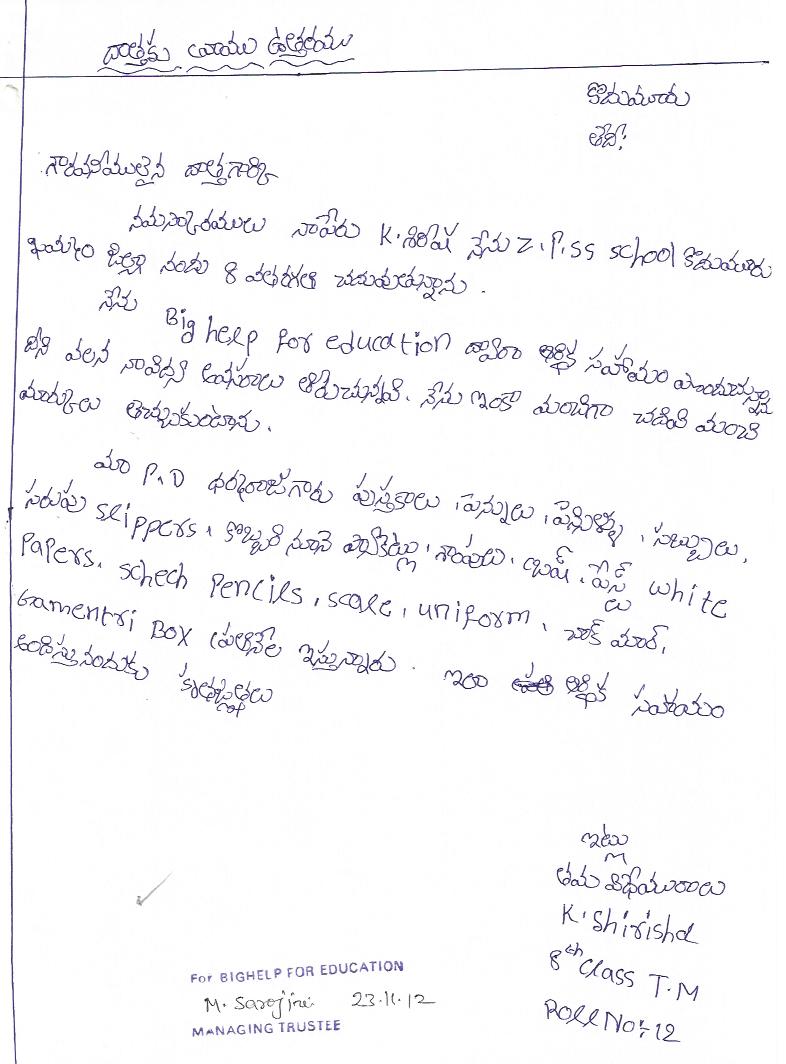 దాత్తకు వ్రాయు ఉత్తరము
కొదుమూరు
తేది:
గౌరవనీములైన దాత్తగార్కి
నమస్కారములు నాపేరు K. శిరీష నేను Z.P.SS school కొదుమూరు
ఖమ్మం జిల్లా నందు 8 వతరగతి చదువుతున్నాను.
నేను Big help for education ద్వారా ఆర్థిక సహాయం పొందుచున్నాను
దీని వలన నావిద్య అవసరాలు తీరుచున్నవి. నేను ఇంకా మంచిగా చదివి మంచి
మార్కులు తెచ్చుకుంటాను.
మా P.D ధర్మరాజుగారు పుస్తకాలు, పెన్నులు, పెన్సిళ్ళు, సబ్బులు,
సరుపు slippers, కొబ్బరి నూనె ప్యాకెట్లు, శాంపులు, బ్రష్, పేస్ట్లు white
Papers, schech Pencils, scale, uniform, బ్లాక్ మార్,
Gamentri Box ప్రతినెల ఇస్తున్నారు. ఇలా ఆర్థిక సహాయం
అందిస్తునందుకు కృతజ్ఞతలు
ఇట్లు
తమ విధేయురాలు
K. Shirisha
8th Class T.M
Roll No:-12
For BIGHELP FOR EDUCATION
M. Sarojini 23.11.12
MANAGING TRUSTEE